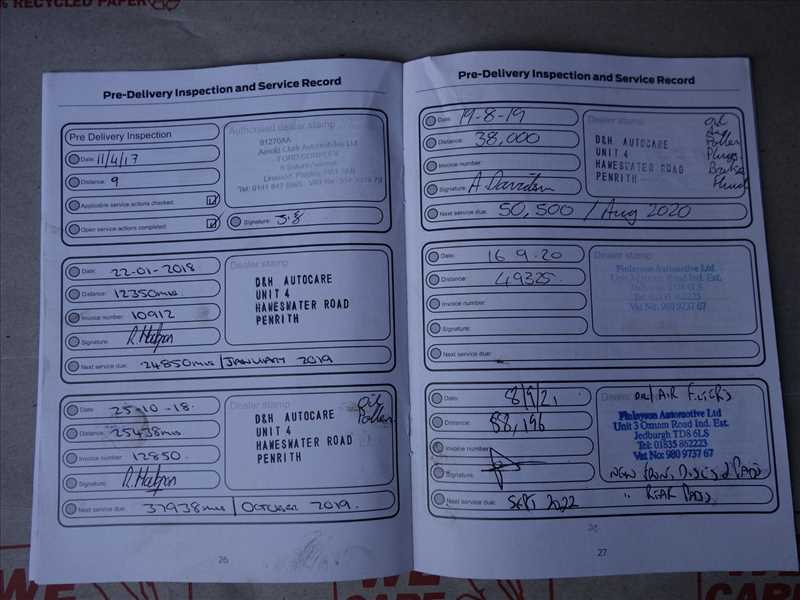 RECYCLED PAPER
Pre-Delivery Inspection and Service Record
Pre Delivery Inspection
Date: 11/4/17
Distance: 9
Applicable service actions checked:
Open service actions completed:
Authorised dealer stamp
Arnold Clark Automobiles Ltd
Signature:
Date: 22-01-2018.
Distance: 12350mls
Invoice number: 10912
Signature:
Next service due: 24850mls / JANUARY 2019
Dealer stamp
D&H AUTOCARE
UNIT 4
HAWESWATER ROAD
PENRITH
Date: 25-10-18.
Distance: 25438mls
Invoice number: 12850.
Signature:
Next service due: 37938mls / OCTOBER 2019.
Dealer stamp
Oil
Pollen
D&H AUTOCARE
UNIT 4
HAWESWATER ROAD
PENRITH
26
Pre-Delivery Inspection and Service Record
Date: 19-8-19
Distance: 38,000
Invoice number:
Signature: A Davidson
Next service due: 50,500 / Aug 2020
Dealer stamp
D&H AUTOCARE
UNIT 4
HAWESWATER ROAD
PENRITH
Oil
Pollen
Plugs
Brake
Fluid
Date: 16 9.20
Distance: 49325.
Invoice number:
Signature:
Next service due:
Dealer stamp
Finlayson Automotive Ltd
Unit 3 Oxnam Road Ind. Est.
Jedburgh TD8 6LS
Tel: 01835 862223
Vat No: 980 9737 67
Date: 8/9/21
Distance:
Invoice number:
Signature:
Next service due: SEPT 2022
Dealer
OIL/AIR FILTERS
Finlayson Automotive Ltd
Unit 3 Oxnam Road Ind. Est.
Jedburgh TD8 6LS
Tel: 01835 862223
Vat No: 980 9737 67
NEW FRONT DISCS & PADS
" REAR PADS
27
WE
CARE
WE
CARE